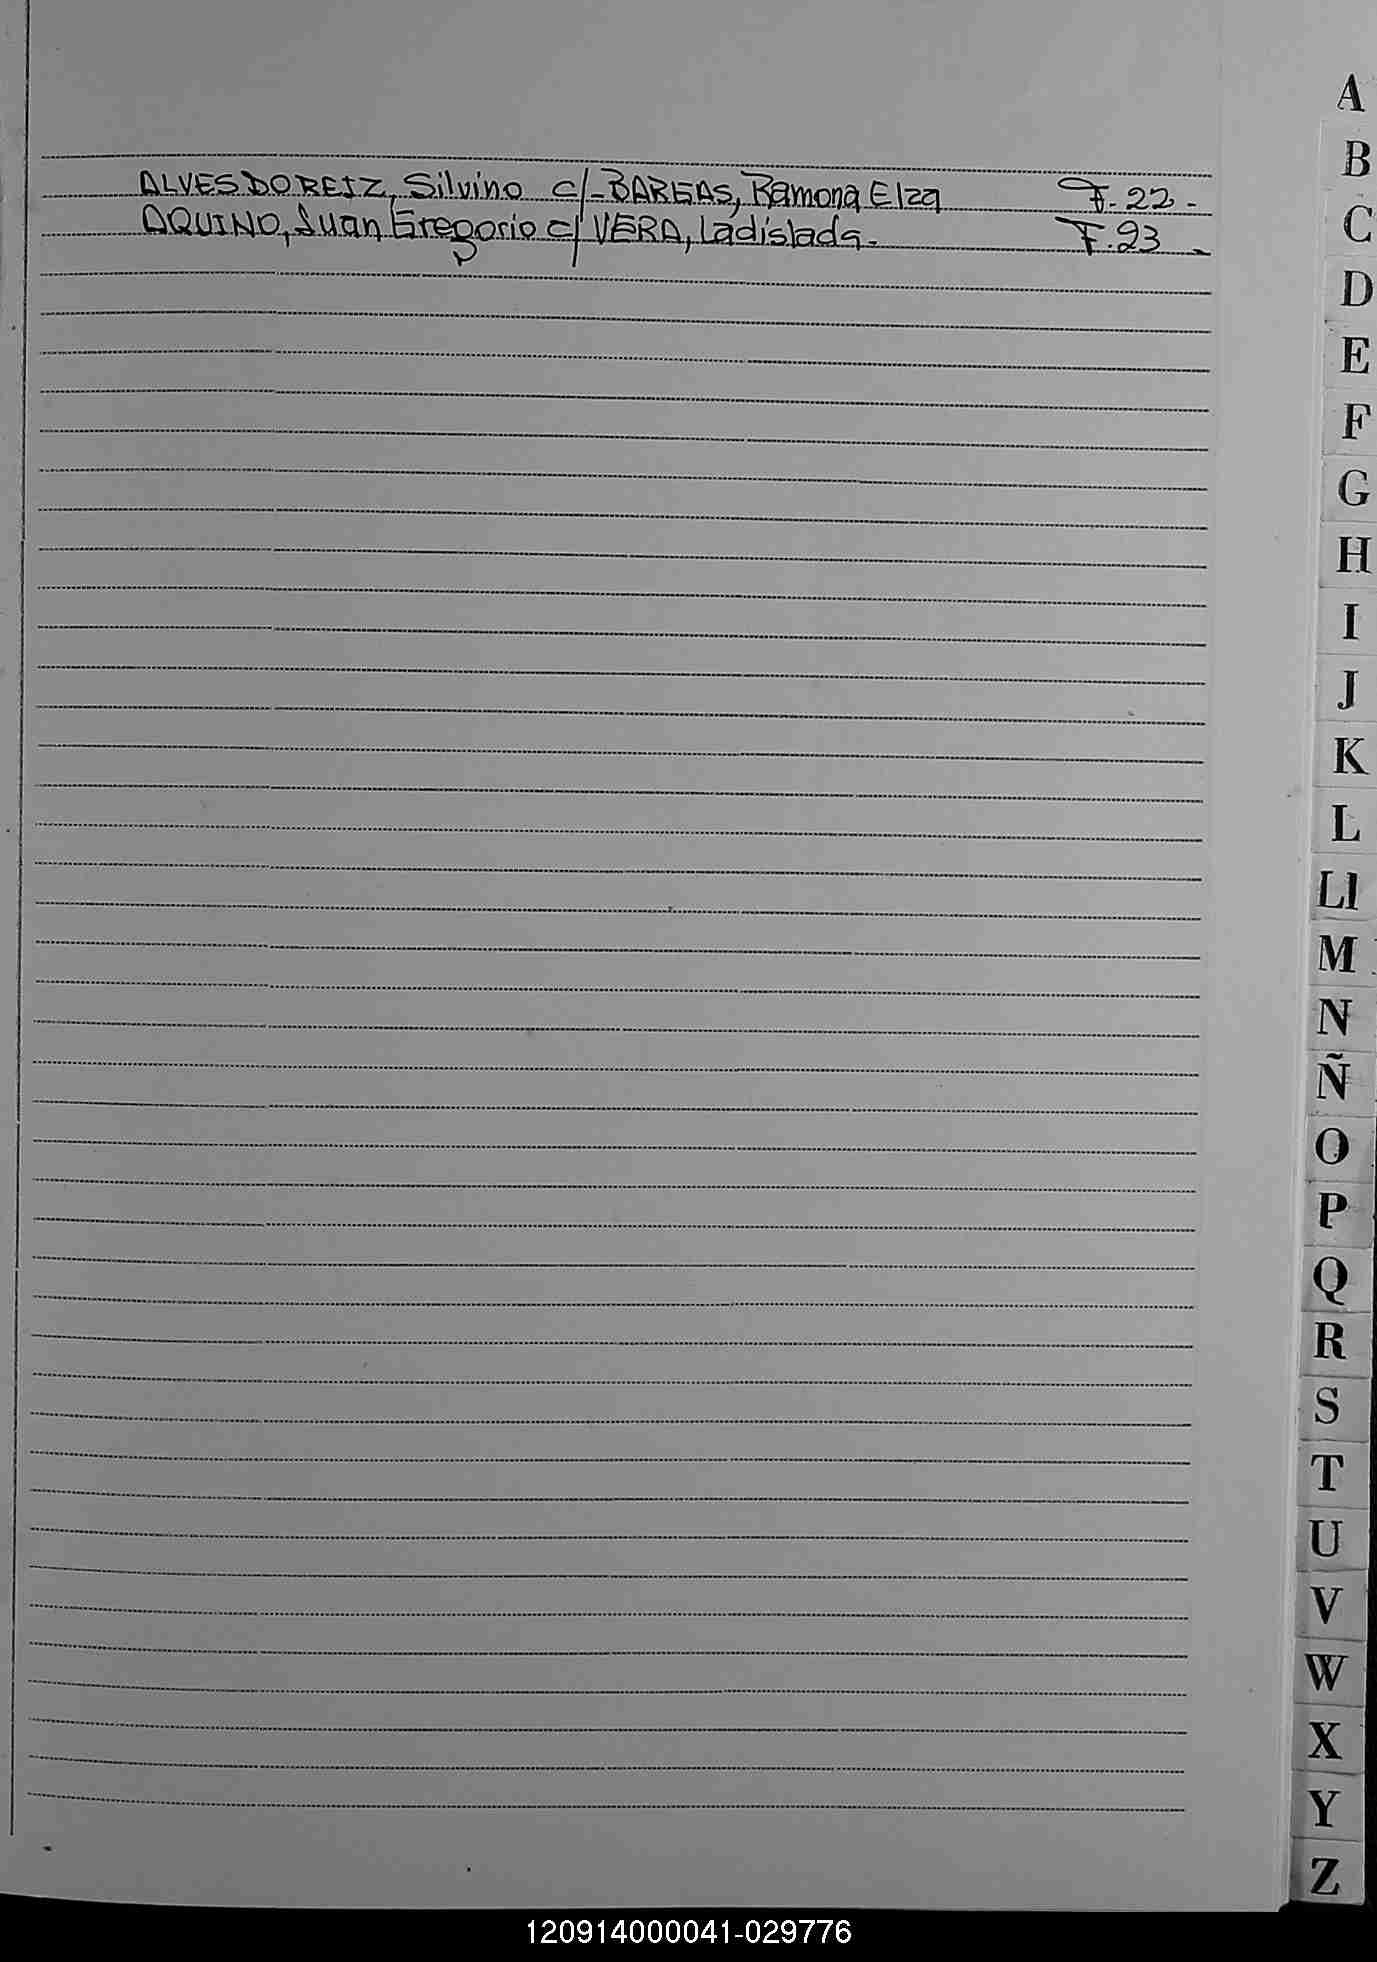 ALVES DOREIZ, Silvino c/- BARGAS, Ramona Elza F. 22 -
AQUINO, Juan Gregorio c/ VERA, Ladislada. F. 23 -
A
B
C
D
E
F
G
H
I
J
K
L
Ll
M
N
Ñ
O
P
Q
R
S
T
U
V
W
X
Y
Z
120914000041-029776